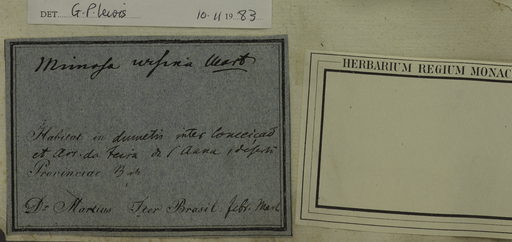 DET. G.P. Lewis 10-11 1983
Mimosa Mart
HERBARIUM REGIUM MONAC
Habitat in dumetis inter Conceicaō
et Arr. da Feira de S. Anna, deserti
Provinciae
Dr. Martius Iter Brasil. febr. Mart.